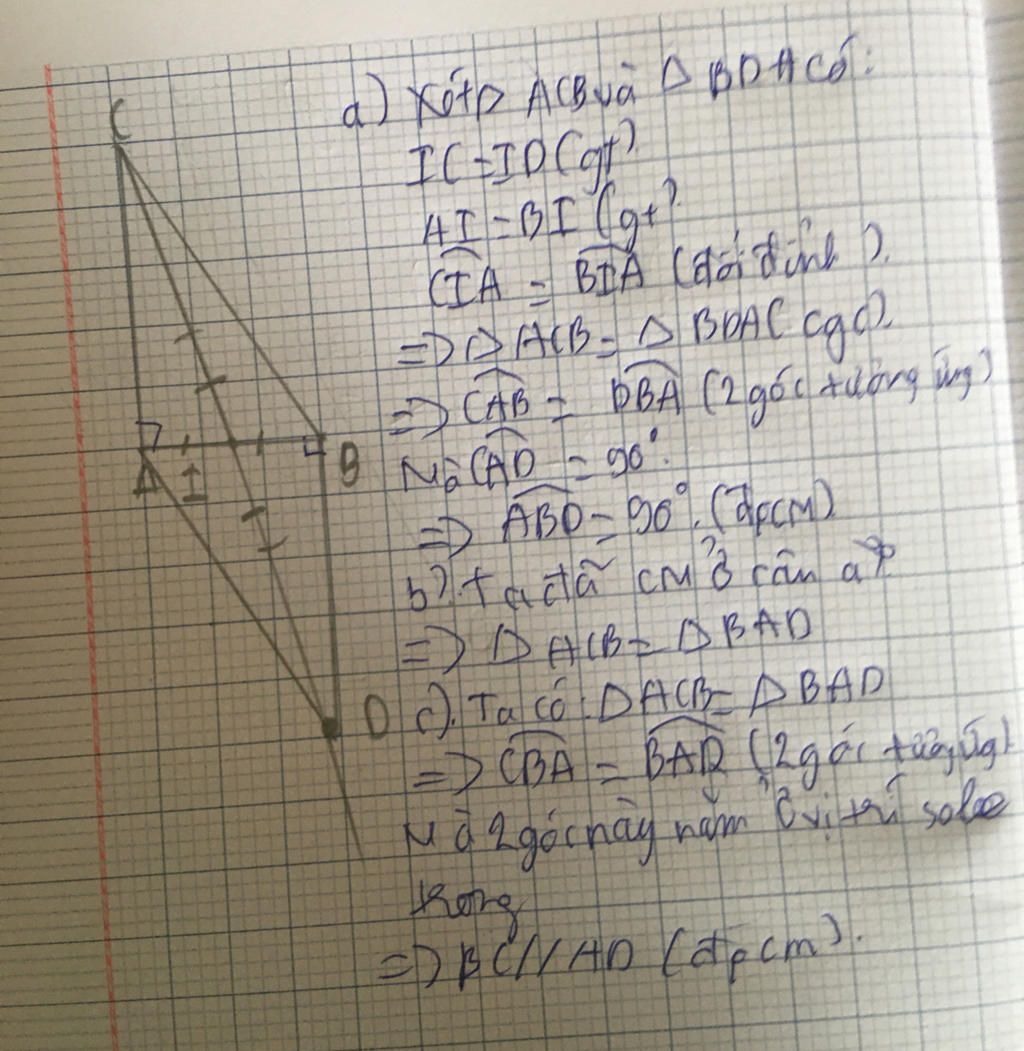 C
A
I
B
D
a) Xét Δ ACB và Δ BDA có:
IC = ID (gt)
AI = BI (gt)
CIA = BIA (đối đỉnh).
=> Δ ACB = Δ BDA (cgc).
=> CAB = DBA (2 góc tương ứng)
Mà CAD = 90°.
=> ABD = 90°. (đpcm)
b). Ta đã CM ở câu a
=> Δ ACB = Δ BAD
c). Ta có: Δ ACB = Δ BAD
=> CBA = BAD (2 góc tương ứng)
Mà 2 góc này nằm ở vị trí sole
trong
=> BC // AD (đpcm).